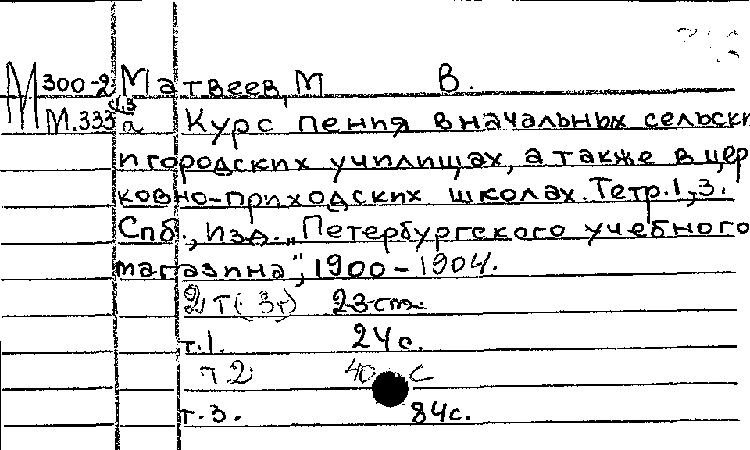 М 300-2 Матвеев, М В.
М.333 1,3 а Курс пения в начальных сельски
и городских училищах, а также в цер
ковно-приходских школах. Тетр. 1, 3.
Спб., изд. „Петербургского учебного
магазина", 1900-1904.
2 т (3т) 23 ст.
т. 1. 24 с.
т 2 40 с
т. 3. 84 с.